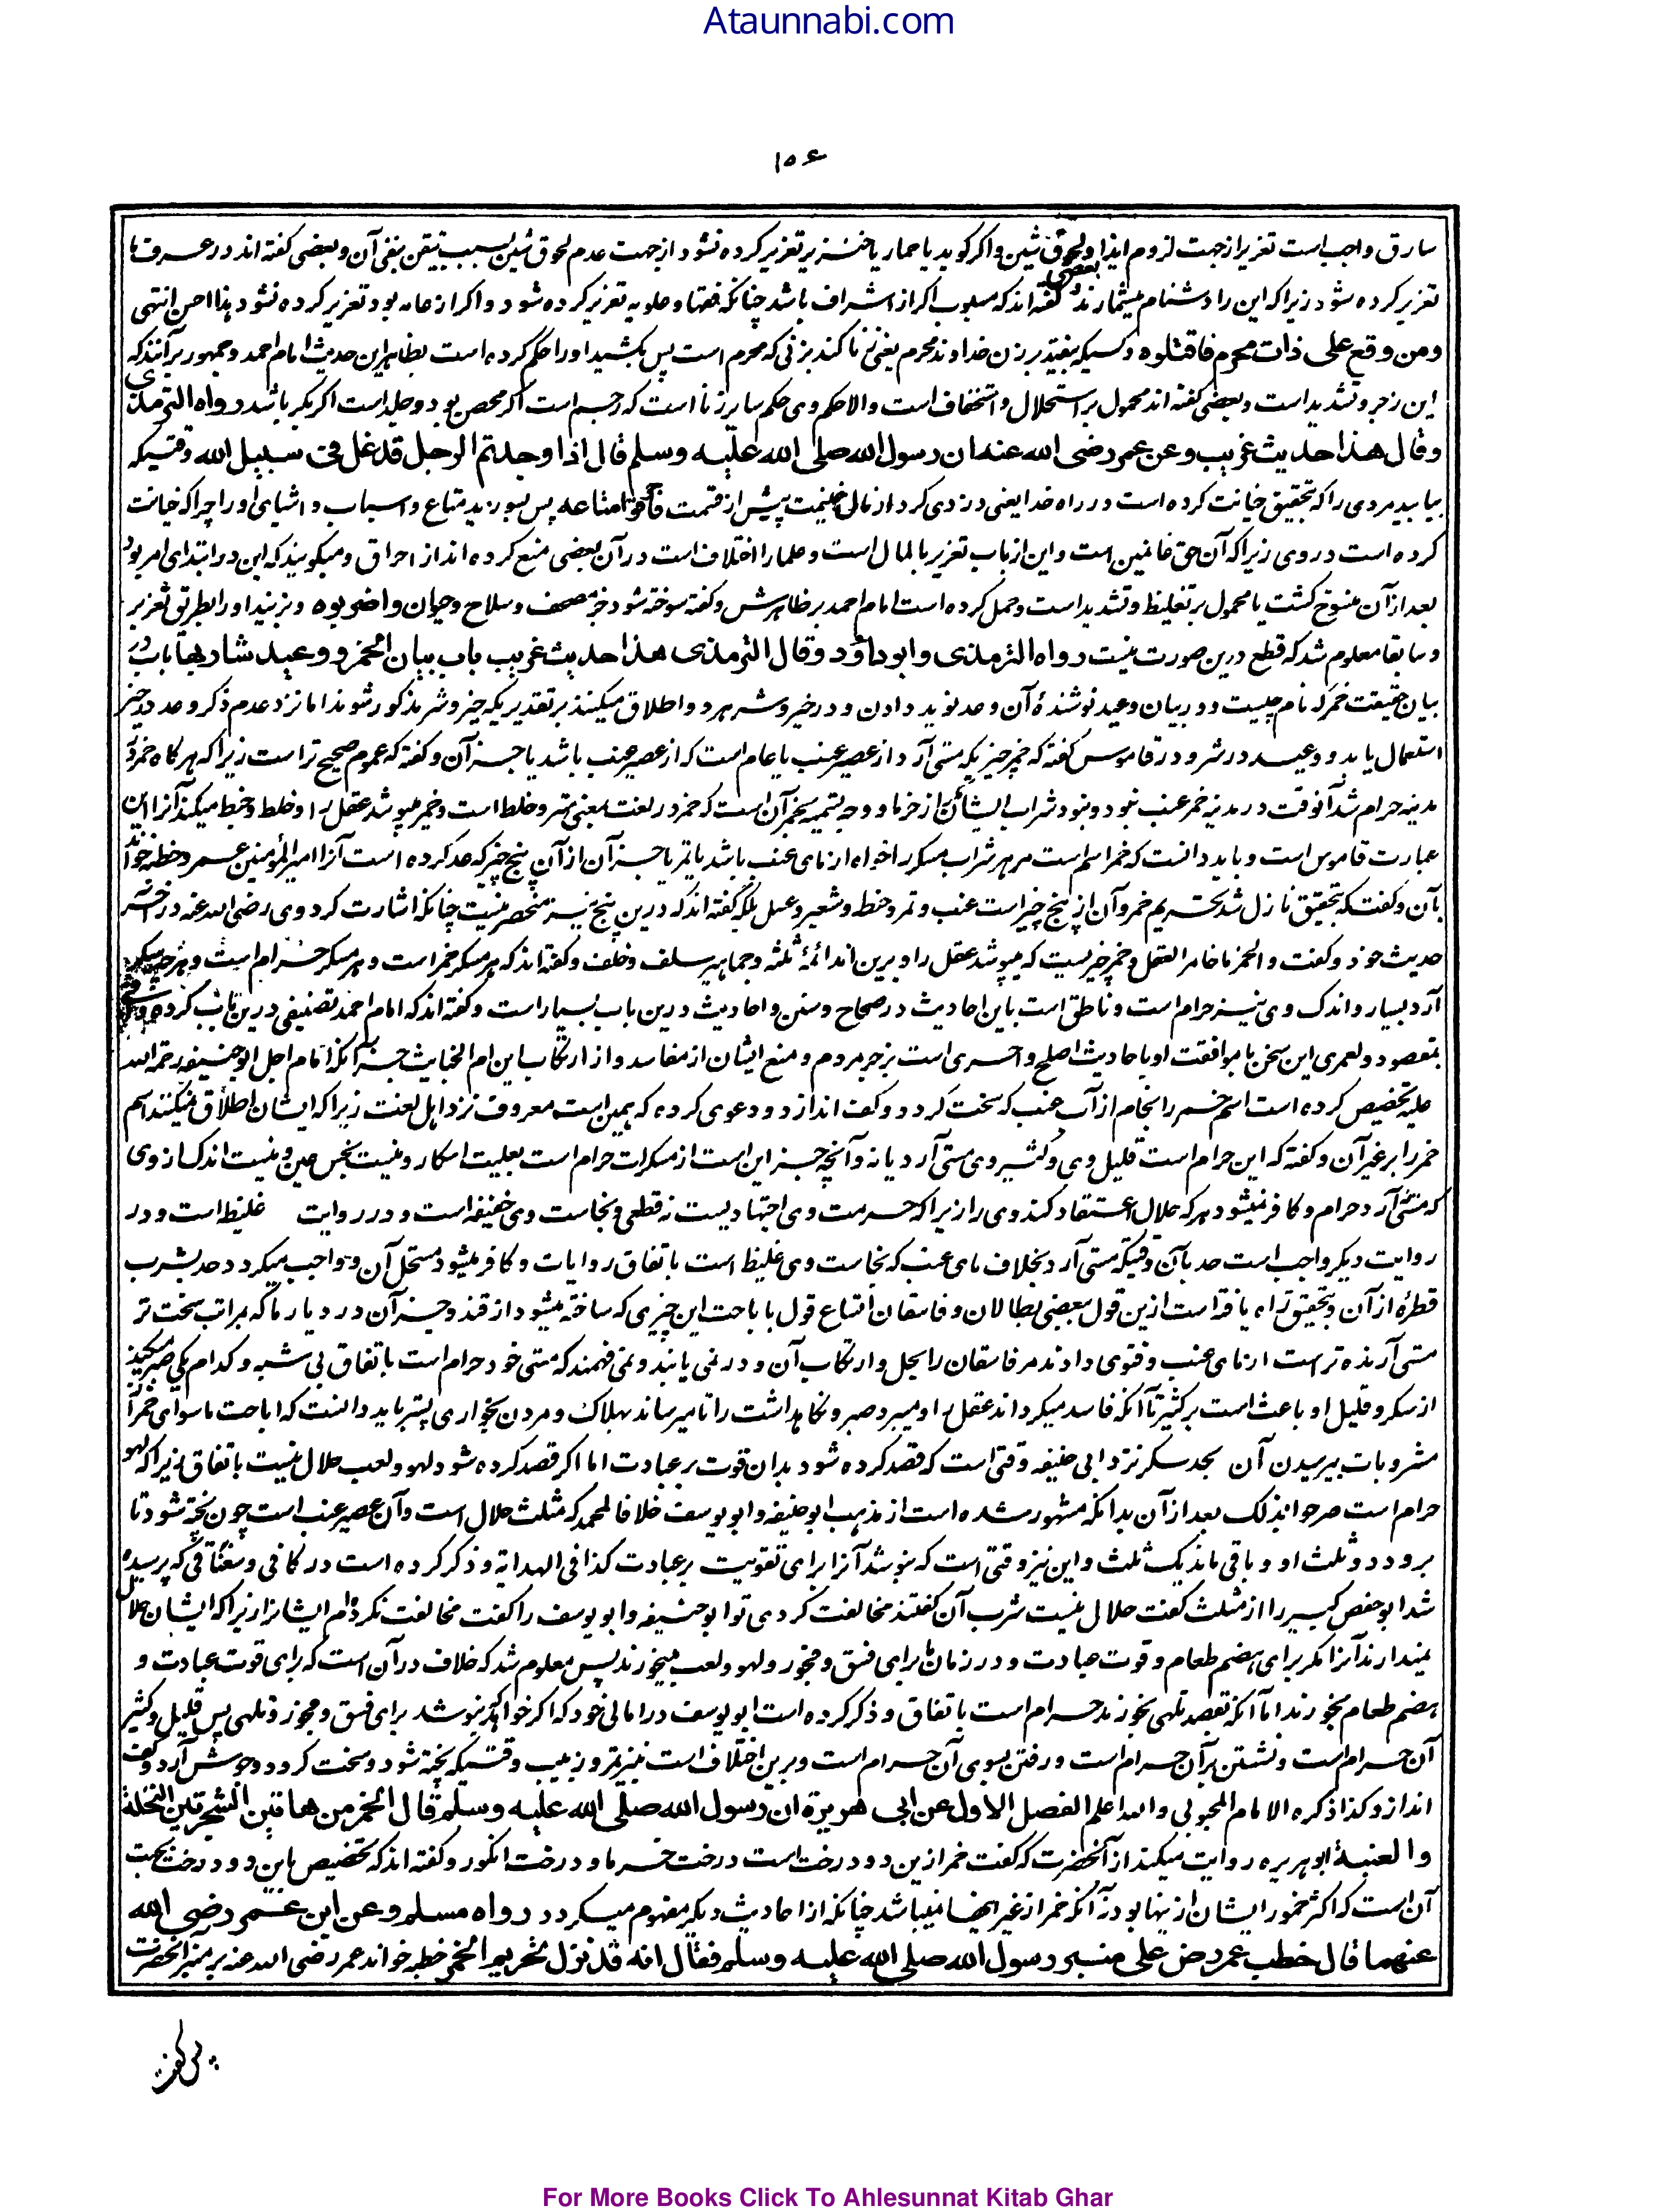 Ataunnabi.com
۱۵۶
سارق واجب است تعزیر از جهت لزوم ایذا و لحوق شین و اگر گوید یا حمار یا خنزیر تعزیر کرده نشود از جهت عدم لحوق شین بسبب تیقن بنفی آن و بعضی گفته اند در عرف ما
تعزیر کرده شود زیرا که این را دشنام میشمارند و بعضی گفته اند که مسلوب اگر از اشراف باشد چنانکه فقها و علویه تعزیر کرده شود و اگر از عامه بود تعزیر کرده نشود هذا احسن انتهی
ومن وقع علی ذات محرم فاقتلوه و کسیکه بیفتد بر زن خداوند محرم یعنی زنا کند بزنی که محرم است پس بکشید او را حکم کرده است بظاهر این حدیث امام احمد و جمهور برآنند که
این زجر و تشدید است و بعضی گفته اند محمول بر استحلال و استخفاف است والا حکم وی حکم سایر زنا است که رجم است اگر محصن بود و جلد است اگر بکر باشد رواه الترمذی
وقال هذا حدیث غریب وعن عمر رضی الله عنه ان رسول الله صلی الله علیه وسلم قال اذا وجدتم الرجل قد غل فی سبیل الله وقتیکه
بیابید مردی را که بتحقیق خیانت کرده است در راه خدا یعنی دزدی کرد از مال غنیمت پیش از قسمت فاحرقوا متاعه پس بسوزید متاع و اسباب و اشیای او را چرا که خیانت
کرده است در وی زیرا که آن حق غانمین است و این از باب تعزیر بالمال است و علما را اختلاف است در آن بعضی منع کرده اند از احراق و میگویند که این در ابتدای امر بود
بعد از آن منسوخ گشت یا محمول بر تغلیظ و تشدید است و حمل کرده است امام احمد بر ظاهرش و گفته سوخته شود جز مصحف و سلاح و حیوان واضربوه و بزنید او را بطریق تعزیر
و سابقا معلوم شد که قطع درین صورت نیست رواه الترمذی وابوداؤد وقال الترمذی هذا حدیث غریب باب بیان الخمر و وعید شاربها باب در
بیان حقیقت خمر که نام چیست و در بیان وعید نوشندهٔ آن وعد نوید دادن و در خیر و شر هر دو اطلاق میکنند بر تقدیریکه خیر و شر مذکور شوند اما نزد عدم ذکر وعد در خیر
استعمال یابد و وعید در شر و در قاموس گفته که خمر چیزیکه مستی آرد از عصیر عنب یا عام است که از عصیر عنب باشد یا جز آن و گفته که عموم صحیح تر است زیرا که هرگاه خمر در
مدینه حرام شد آنوقت در مدینه خمر عنب نبود و نبود شراب ایشان مگر از خرما و وجه تسمیه بخمر آن است که خمر در لغت بمعنی ستر و خلط است و خمر میپوشد عقل را و خلط و خبط میکند آنرا این
عبارت قاموس است و باید دانست که خمر اسم است مر هر شراب مسکر را خواه از مای عنب باشد یا تمر یا جز آن از آن پنج چیز که عد کرده است آنرا امیر المؤمنین عمر و خطبه خواند
بآن و گفت که بتحقیق نازل شد تحریم خمر و آن از پنج چیز است عنب و تمر و حنطه و شعیر و عسل بلکه گفته اند که درین پنج نیز منحصر نیست چنانکه اشارت کرد وی رضی الله عنه در آخر
حدیث خود و گفت والخمر ما خامر العقل و خمر چیزیست که میپوشد عقل را و برین اند ائمهٔ ثلثه و جماهیر سلف و خلف و گفته اند که هر مسکر خمر است و هر مسکر حرام است و هرچه سکر
آرد بسیار و اندک وی نیز حرام است و ناطق است باین احادیث در صحاح و سنن و احادیث درین باب بسیار است و گفته اند که امام احمد تصنیفی درین باب کرده
بمقصود و لعمری این سخن با موافقت او باحادیث اصلح و احری است بزجر مردم و منع ایشان از مفاسد و از ارتکاب این ام الخبایث جز آنکه امام اجل ابوحنیفه رحمه الله
علیه تخصیص کرده است اسم خمر را بخام از آب عنب که سخت گردد و کف اندازد و دعوی کرده که همین است معروف نزد اهل لغت زیرا که ایشان اطلاق نمیکنند اسم
خمر را بر غیر آن و گفته که این حرام است قلیل وی و کثیر وی مستی آرد یا نه و آنچه جز این است از مسکرات حرام است بعلیت اسکار و نیست نجس عین و نیست اندک از وی
که مستی آرد حرام و کافر نمیشود هر که حلال اعتقاد کند وی را زیرا که حرمت وی اجتهادیست نه قطعی و نجاست وی خفیفه است و در روایت غلیظه است و در
روایت دیگر واجب است حد بآن وقتیکه مستی آرد بخلاف مای عنب که نجاست وی غلیظ است باتفاق روایات و کافر میشود مستحل آن و واجب میگردد حد بشرب
قطرهٔ از آن و بتحقیق راه یافته است ازین قول بعضی بطالان و فاسقان اتباع قول باباحت این چیزی که ساخته میشود از قند و جز آن در دیار ما که بمراتب سخت تر
مستی آرنده تر است از مای عنب و فتوی دادند مر فاسقان را بحل و ارتکاب آن و در نمی یابند و نمی فهمند که مستی خود حرام است باتفاق بی شبه و کدام یکی صبر میکند
از سکر و قلیل او باعث است بر کثیر تا آنکه فاسد میگرداند عقل را و میبرد صبر و نگاهداشت را تا میرساند بهلاک و مردن بخواری پستر باید دانست که اباحت ماسوای خمر از
مشروبات بنرسیدن آن بحد سکر نزد ابی حنیفه وقتی است که قصد کرده شود بدان قوت بر عبادت اما اگر قصد کرده شود لهو و لعب حلال نیست باتفاق زیرا که لهو
حرام است صرحوا بذلک بعد از آن بدانکه مشهور شده است از مذهب ابوحنیفه و ابویوسف خلافا لمحمد که مثلث حلال است و آن عصیر عنب است چون پخته شود تا
برود دو ثلث او و باقی ماند یک ثلث و این نیز وقتی است که بنوشد آنرا برای تقویت بر عبادت کذا فی الهدایة و ذکر کرده است در کافی و مغنافی که پرسیده
شد ابوحفص کبیر را از مثلث گفت حلال نیست شرب آن گفتند مخالفت کردی تو ابوحنیفه و ابویوسف را گفت مخالفت نکرده ام ایشانرا زیرا که ایشان حلال
نمیدارند آنرا مگر برای هضم طعام و قوت عبادت و در زمان ما برای فسق و فجور و لهو و لعب میخورند پس معلوم شد که خلاف در آن است که برای قوت عبادت و
هضم طعام بخورند اما آنکه بقصد تلهی بخورند حرام است باتفاق و ذکر کرده است ابویوسف در امالی خود که اگر خواهد بنوشد برای فسق و فجور و تلهی پس قلیل و کثیر
آن حرام است و نشستن بر آن حرام است و رفتن بسوی آن حرام است و برین اختلاف است نبیذ تمر و زبیب وقتیکه پخته شود و سخت گردد و جوش آرد و کف
اندازد کذا ذکره الامام المحبوبی والله اعلم الفصل الاول عن ابی هریرة ان رسول الله صلی الله علیه وسلم قال الخمر من هاتین الشجرتین النخلة
والعنبة ابوهریره روایت میکند از آنحضرت که گفت خمر ازین دو درخت است درخت خرما و درخت انگور و گفته اند که تخصیص باین دو درخت بجهت
آن است که اکثر خمور ایشان ازینها بود نه آنکه خمر از غیر اینها نمیباشد چنانکه از احادیث دیگر مفهوم میگردد رواه مسلم وعن ابن عمر رضی الله
عنهما قال خطب عمر رض علی منبر رسول الله صلی الله علیه وسلم فقال انه قد نزل تحریم الخمر خطبه خواند عمر رضی الله عنه بر منبر آنحضرت
پس گفت
For More Books Click To Ahlesunnat Kitab Ghar